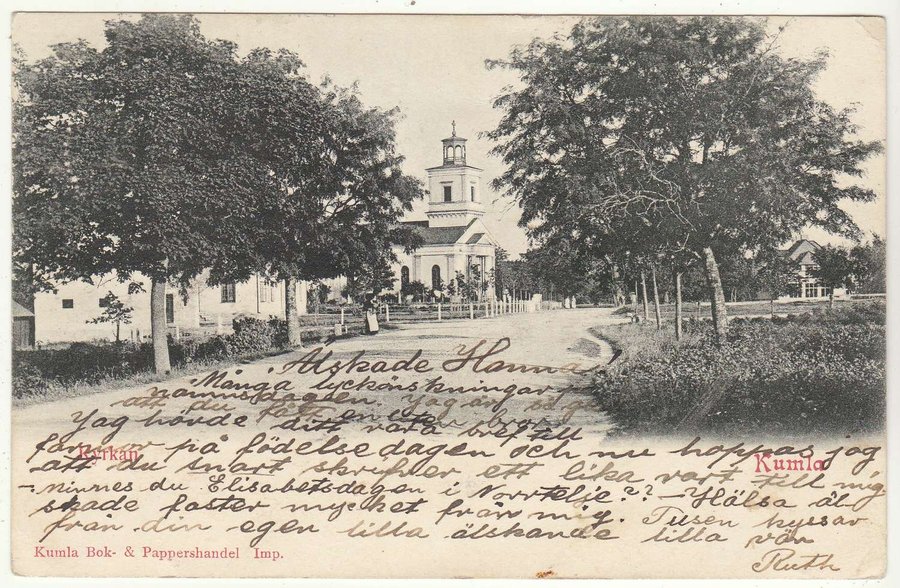 Älskade Hanna
Många lyckönskningar
namnsdagen. Jag är
att du fått en
Jag hörde ditt vara bref till
far på födelsedagen och nu hoppas jag
Kyrkan
Kumla
att du snart skrifver ett lika vart till mig
- minnes du Elisabetsdagen i Norrtelje?? - Hälsa äl-
skade faster mycket från mig. Tusen kyssar
från din egen lilla älskande lilla vän
Ruth
Kumla Bok- & Pappershandel Imp.